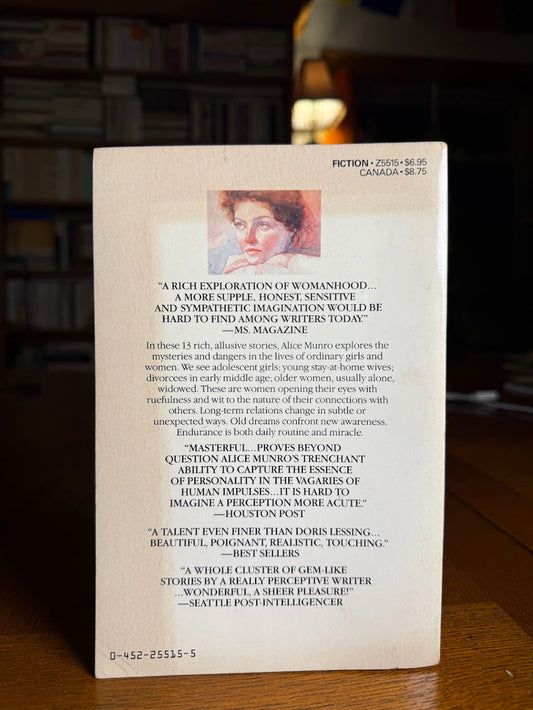 FICTION • Z5515 • $6.95
CANADA • $8.75
“A RICH EXPLORATION OF WOMANHOOD...
A MORE SUPPLE, HONEST, SENSITIVE
AND SYMPATHETIC IMAGINATION WOULD BE
HARD TO FIND AMONG WRITERS TODAY.”
—MS. MAGAZINE
In these 13 rich, allusive stories, Alice Munro explores the
mysteries and dangers in the lives of ordinary girls and
women. We see adolescent girls; young stay-at-home wives;
divorcees in early middle age; older women, usually alone,
widowed. These are women opening their eyes with
ruefulness and wit to the nature of their connections with
others. Long-term relations change in subtle or
unexpected ways. Old dreams confront new awareness.
Endurance is both daily routine and miracle.
“MASTERFUL...PROVES BEYOND
QUESTION ALICE MUNRO’S TRENCHANT
ABILITY TO CAPTURE THE ESSENCE
OF PERSONALITY IN THE VAGARIES OF
HUMAN IMPULSES...IT IS HARD TO
IMAGINE A PERCEPTION MORE ACUTE.”
—HOUSTON POST
“A TALENT EVEN FINER THAN DORIS LESSING...
BEAUTIFUL, POIGNANT, REALISTIC, TOUCHING.”
—BEST SELLERS
“A WHOLE CLUSTER OF GEM-LIKE
STORIES BY A REALLY PERCEPTIVE WRITER
...WONDERFUL, A SHEER PLEASURE!”
—SEATTLE POST-INTELLIGENCER
0-452-25515-5